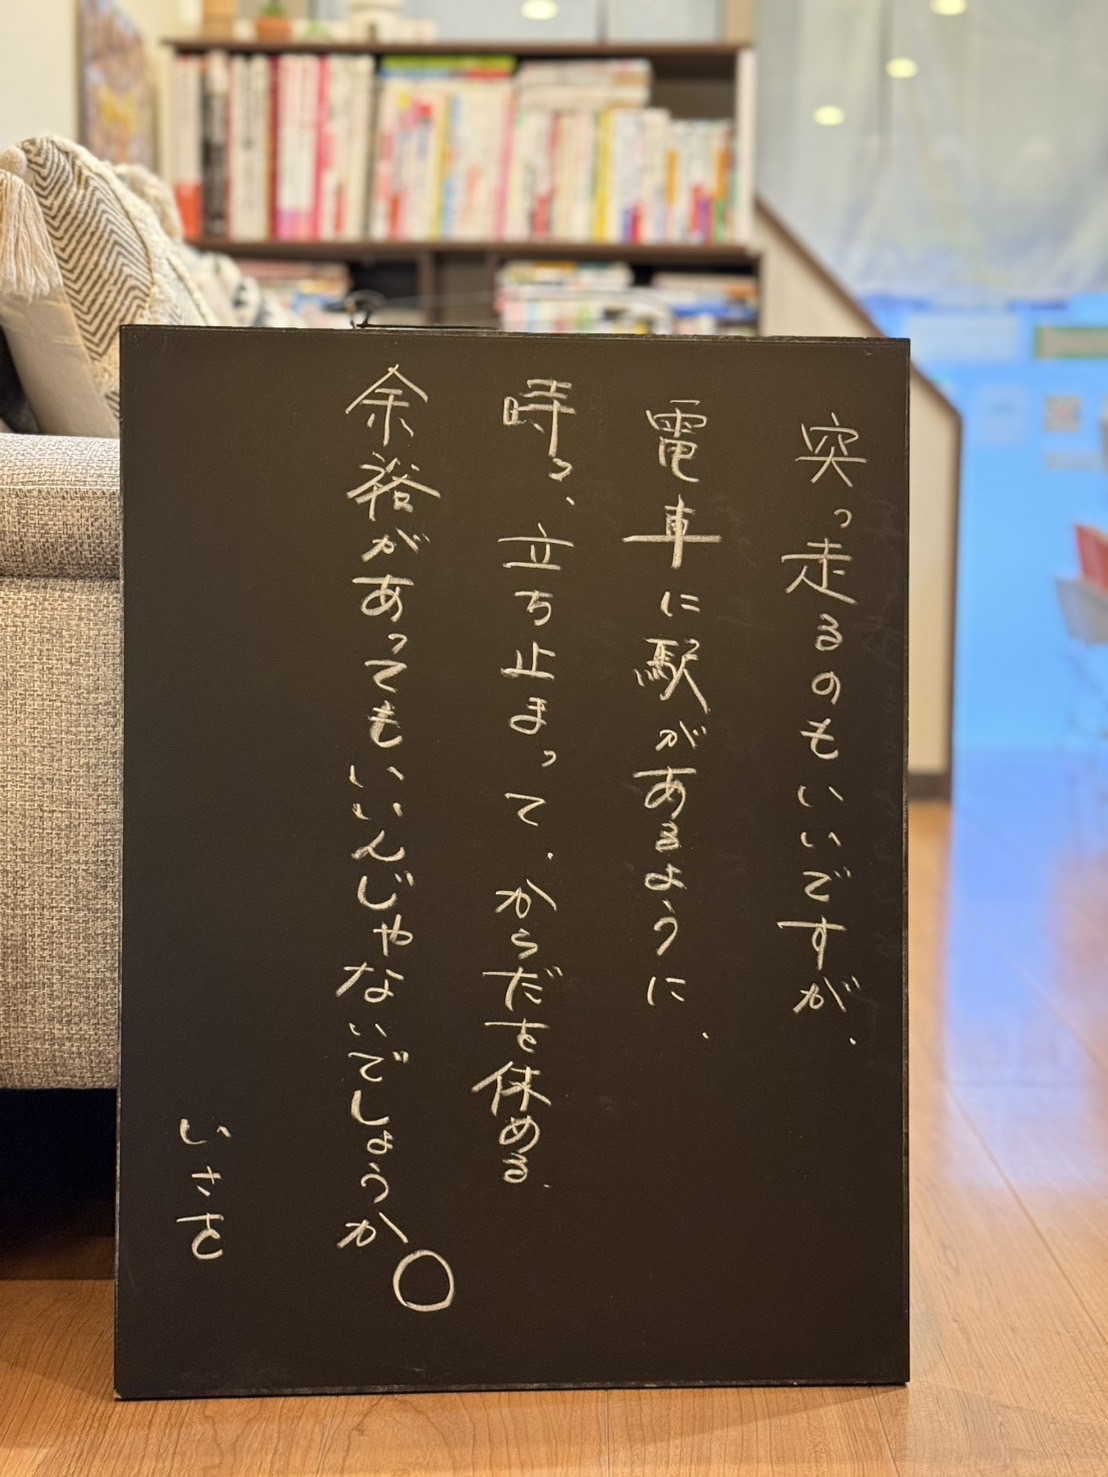 突っ走るのもいいですが、
電車に駅があるように、
時々、立ち止まって、からだを休める、
余裕があってもいいんじゃないでしょうか。
いさを